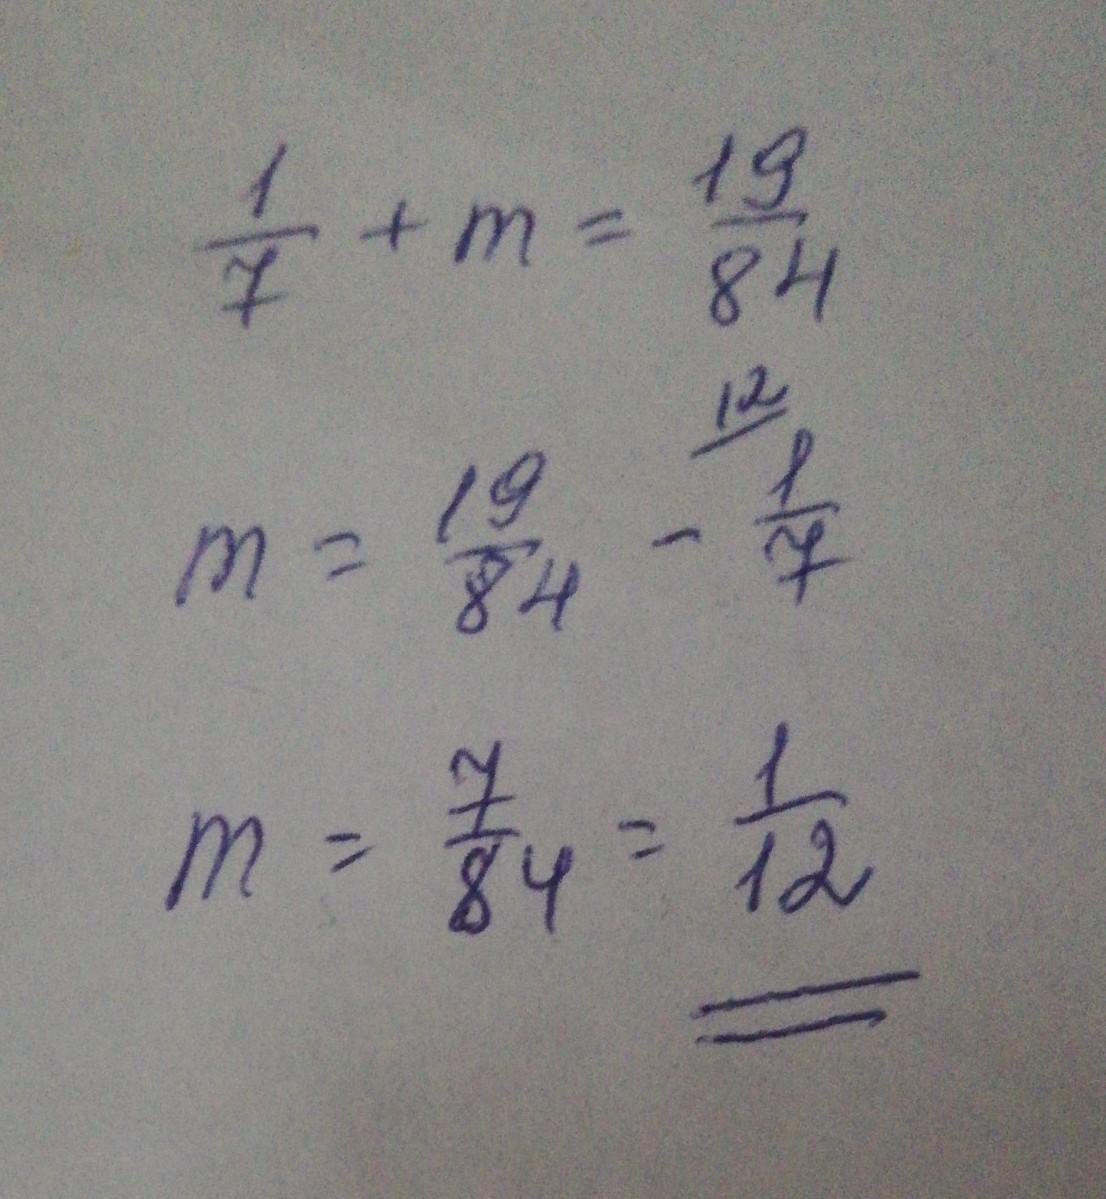 1/7 + m = 19/84
12
m = 19/84 - 1/7
m = 7/84 = 1/12